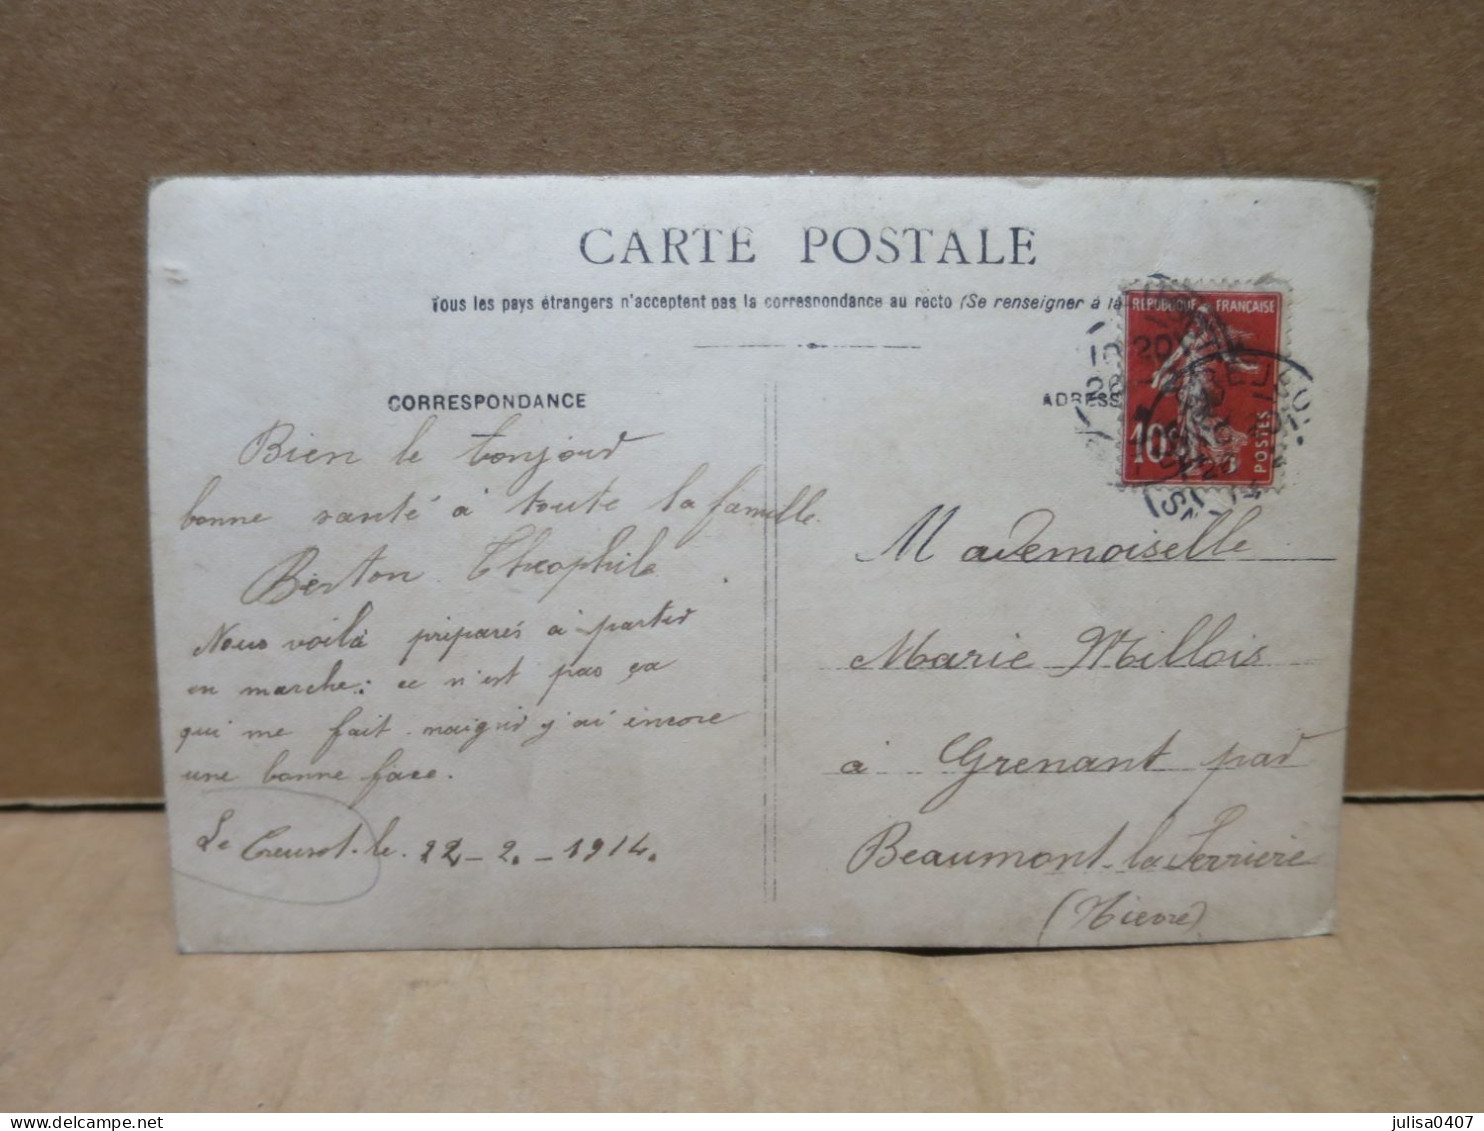 CARTE POSTALE
Tous les pays étrangers n'acceptent pas la correspondance au recto (Se renseigner à la
REPUBLIQUE FRANÇAISE
10
POSTES
CORRESPONDANCE
ADRESS
Bien le bonjour
bonne santé à toute la famille.
Berton Théophile
Nous voilà préparés à partir
en marche: ce n'est pas ça
qui me fait maigrir j'ai encore
une bonne face.
Le Creusot. le. 22 - 2. - 1914.
Mademoiselle
Marie Millois
à Grenant par
Beaumont-la Ferriere
(Nievre)
julisa0407